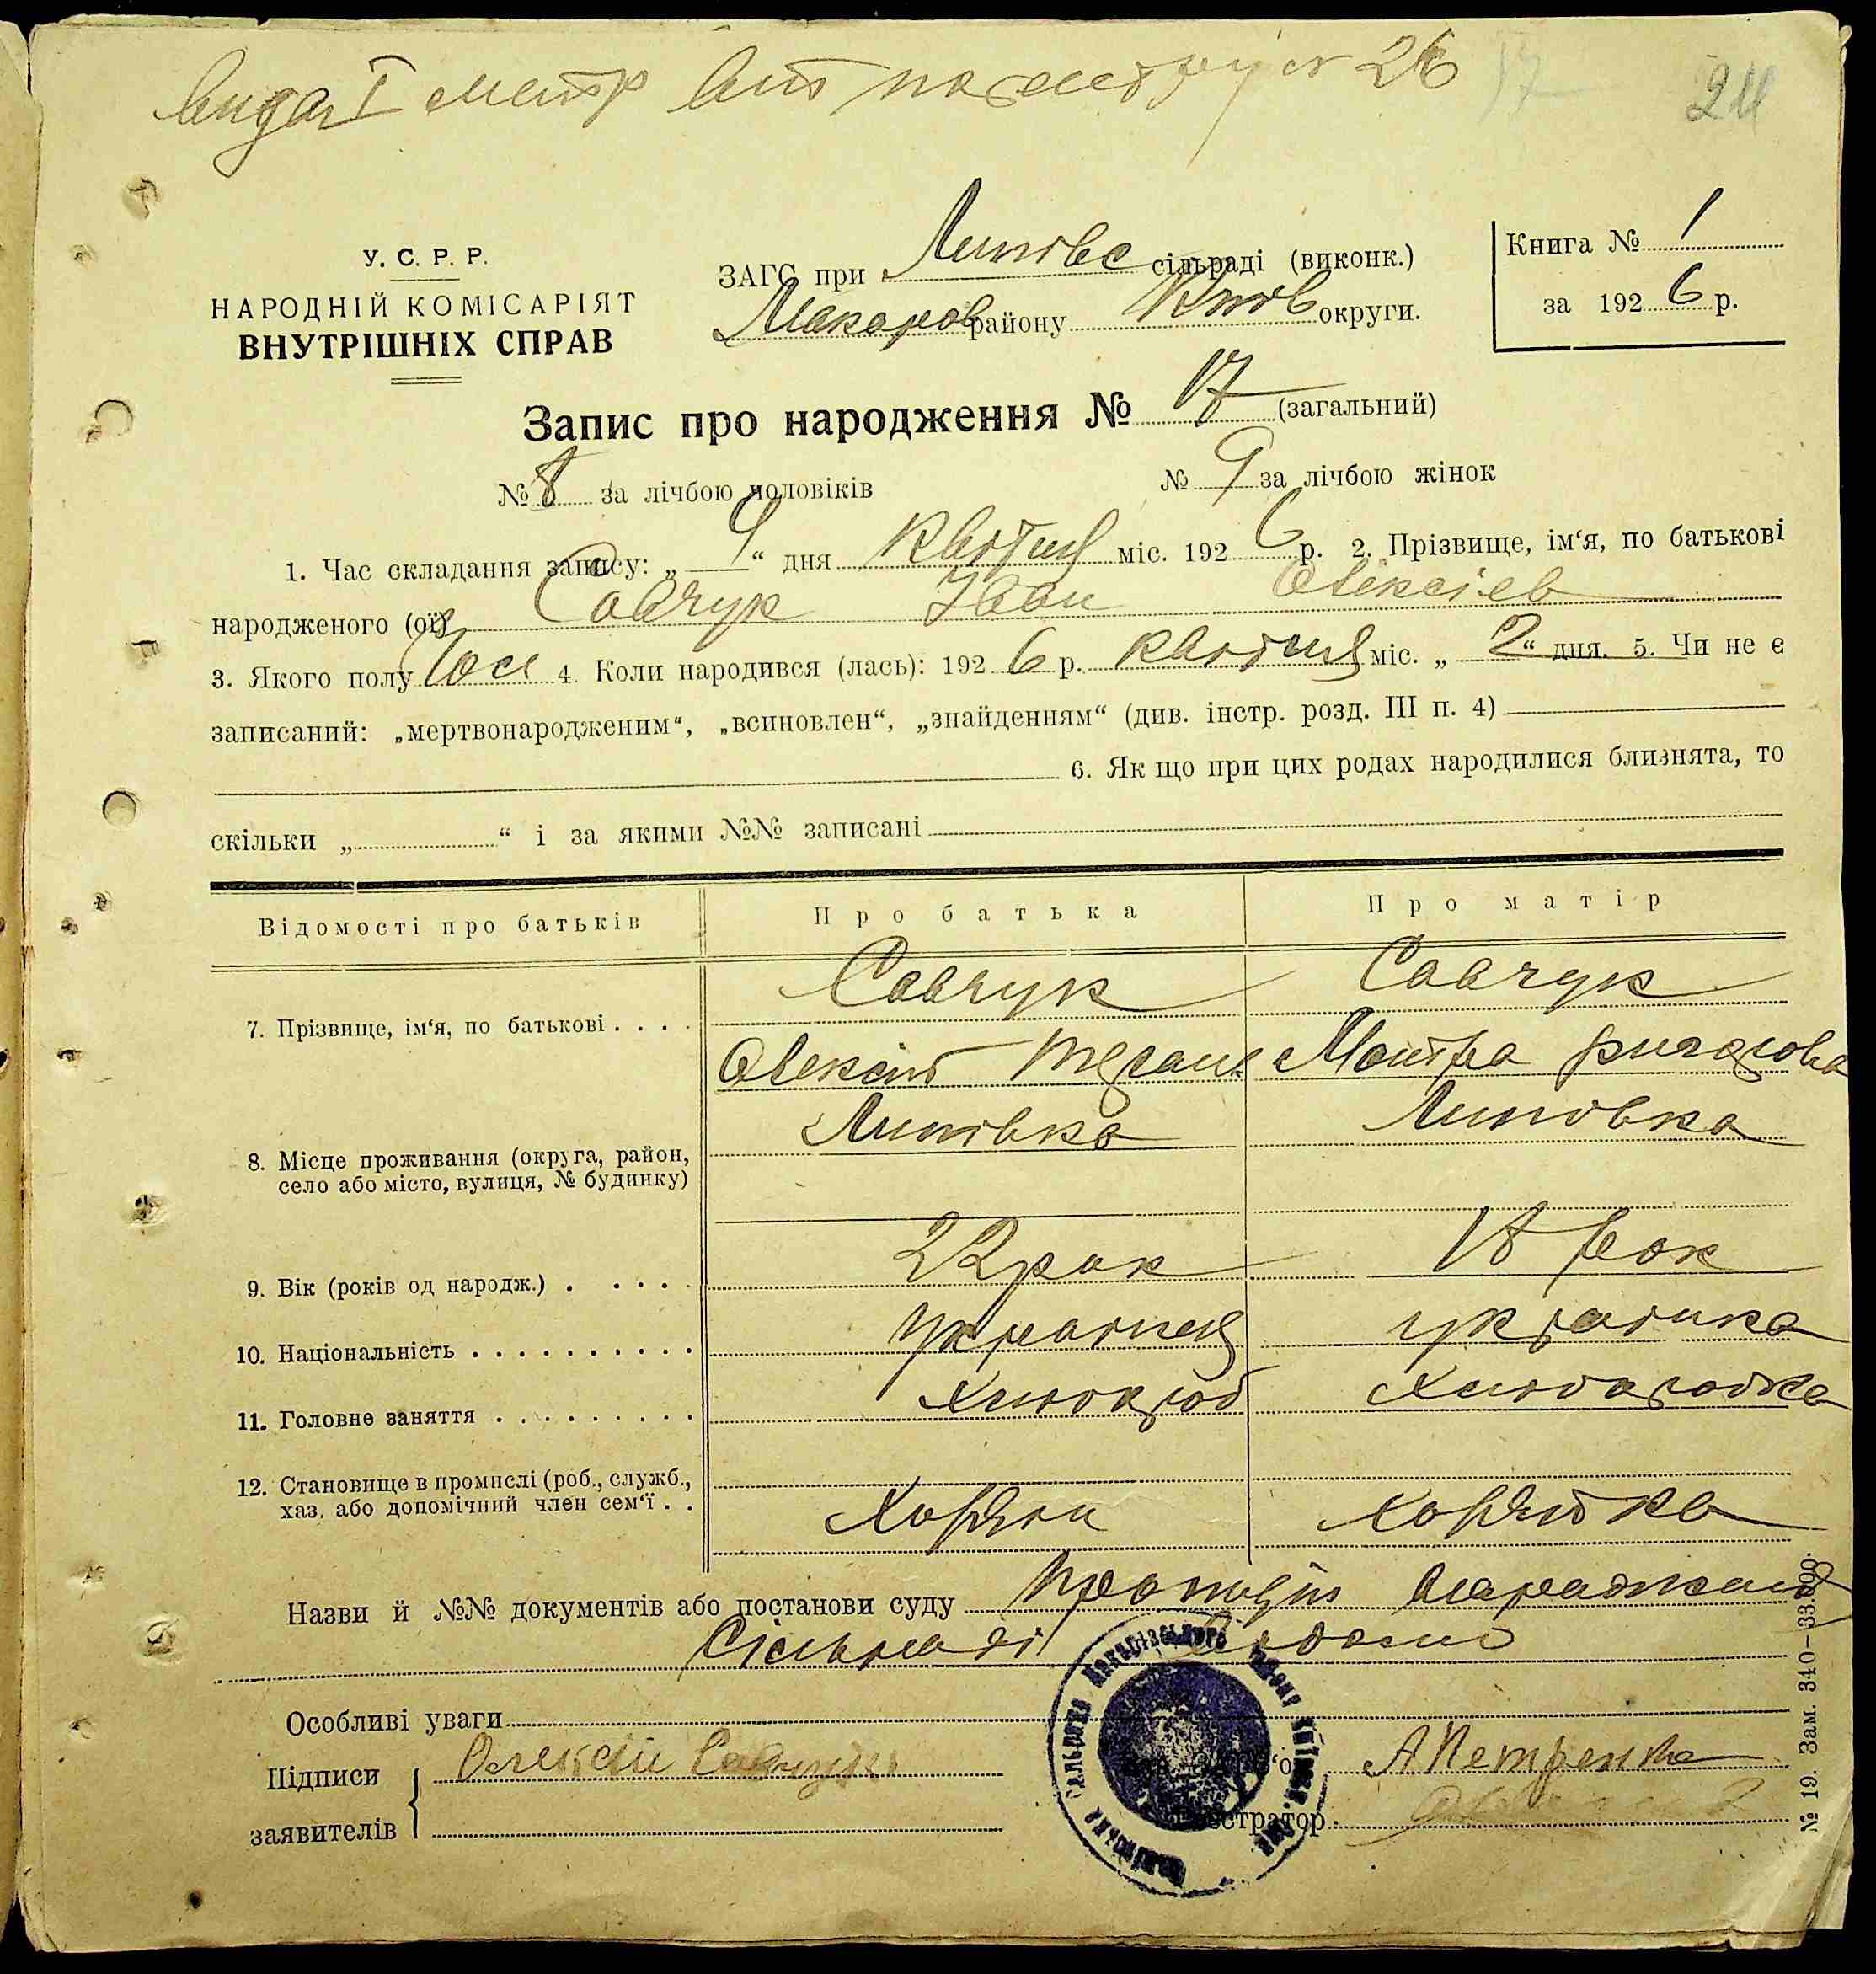 № 26 17 24
У. С. Р. Р.
НАРОДНІЙ КОМІСАРІЯТ
ВНУТРІШНІХ СПРАВ
ЗАГС при Липівс сільраді (виконк.)
Макаров району Київ округи.
Книга № 1
за 192 6 р.
Запис про народження № 17 (загальний)
№ 8 за лічбою чоловіків № 9 за лічбою жінок
1. Час складання запису: „ 9 “ дня квітня міс. 192 6 р. 2. Прізвище, ім‘я, по батькові
народженого (ої) Савчук Іван Олексієв
3. Якого полу Чол 4. Коли народився (лась): 192 6 р. квітня міс. „ 2 “ дня. 5. Чи не є
записаний: „мертвонародженим“, „всиновлен“, „знайденням“ (див. інстр. розд. III п. 4)
6. Як що при цих родах народилися близнята, то
скільки „ “ і за якими №№ записані
Відомості про батьків Про батька Про матір
7. Прізвище, ім‘я, по батькові . . . . Савчук Савчук
Олексій Мотря
Липівка Липовка
8. Місце проживання (округа, район,
село або місто, вулиця, № будинку)
9. Вік (років од народж.) . . . . . 22 рок 18 рок
10. Національність . . . . . . . . . . українця українка
11. Головне заняття . . . . . . . . . Хлібороб Хліборобка
12. Становище в промислі (роб., служб.,
хаз. або допомічний член сем‘ї . . Хозяін Хозяйка
Назви й №№ документів або постанови суду
Сільраді
Особливі уваги
Підписи Олексій Савчук А Петренко
заявителів Реєстратор
№ 19. Зам. 340—33.000.